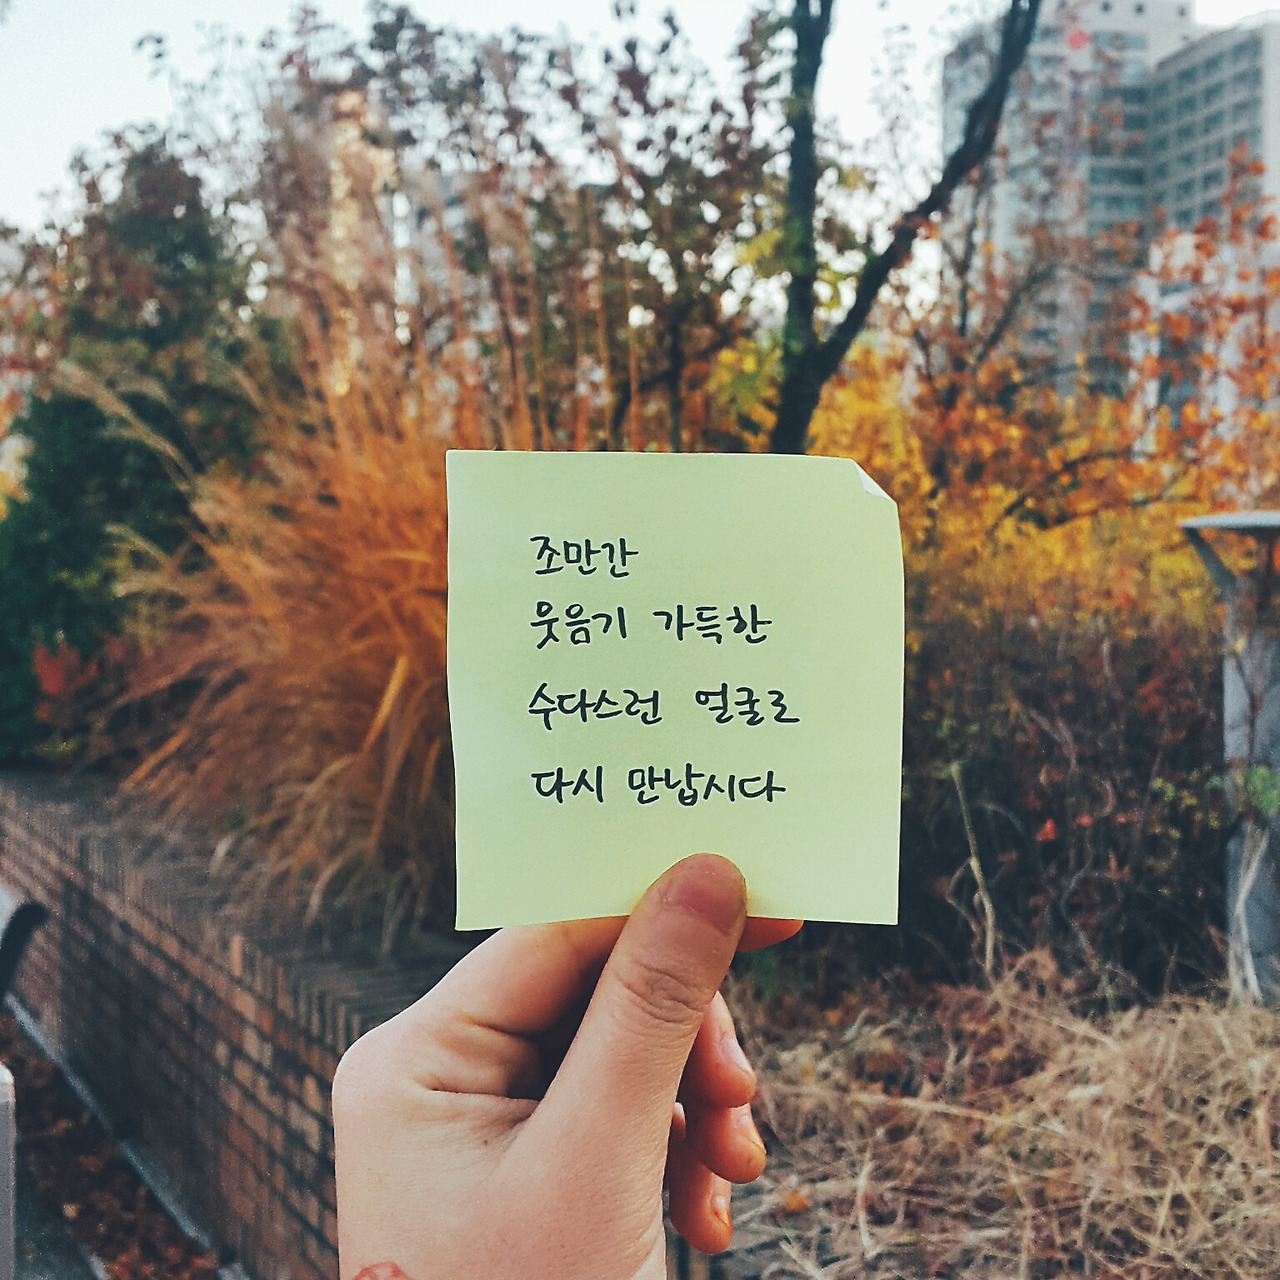 조만간
웃음기 가득한
수다스런 얼굴로
다시 만납시다